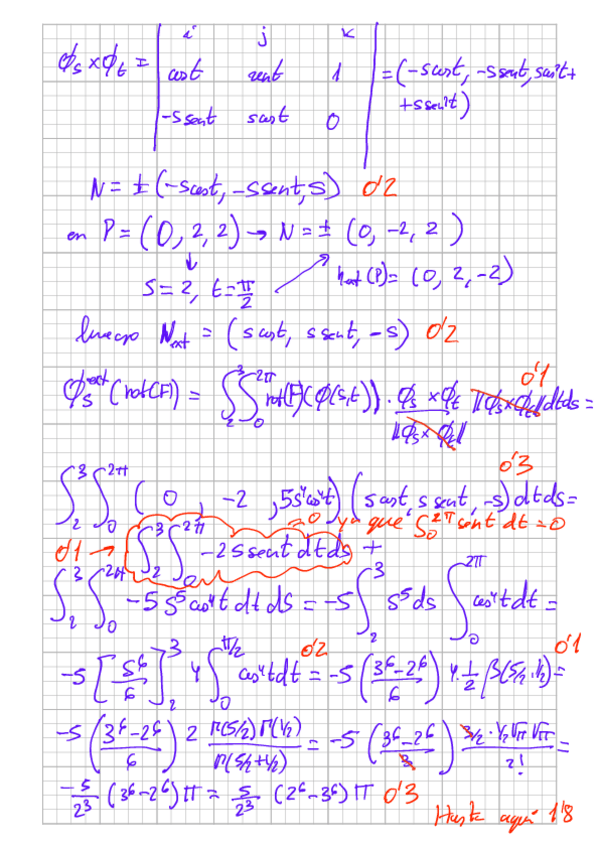 i j k
ϕs×ϕt = | cost sent 1 | = (-s cost, -s sent, s cos²t +
| -s sent s cost 0 | + s sen²t)
N = ± (-s cost, -s sent, s) 0'2
en P = (0, 2, 2) → N = ± (0, -2, 2)
↓
s = 2, t = π/2 next(P) = (0, 2, -2)
luego Next = (s cost, s sent, -s) 0'2
0'1
ϕs^ext (rot(F)) = ∫₂³ ∫₀^2π rot(F)(ϕ(s,t)) · (ϕs × ϕt)/‖ϕs × ϕt‖ ‖ϕs×ϕt‖ dt ds =
0'3
∫₂³ ∫₀^2π (0, -2, 5s⁴cos⁴t) (s cost, s sent, -s) dt ds =
= 0 ya que ∫₀^2π sent dt = 0
0'1 → ∫₂³ ∫₀^2π -2 s sent dt ds +
∫₂³ ∫₀^2π -5 s⁵ cos⁴t dt ds = -5 ∫₂³ s⁵ ds ∫₀^2π cos⁴t dt =
0'2 0'1
-5 [s⁶/6]₂³ 4 ∫₀^π/2 cos⁴t dt = -5 ((3⁶-2⁶)/6) 4 · 1/2 β(5/2, 1/2) =
-5 ((3⁶-2⁶)/6) 2 Γ(5/2)Γ(1/2)/Γ(5/2+1/2) = -5 ((3⁶-2⁶)/3) (3/2 · 1/2 √π √π)/2! =
-5/2³ (3⁶-2⁶) π = 5/2³ (2⁶-3⁶) π 0'3
Hasta aquí 1'8